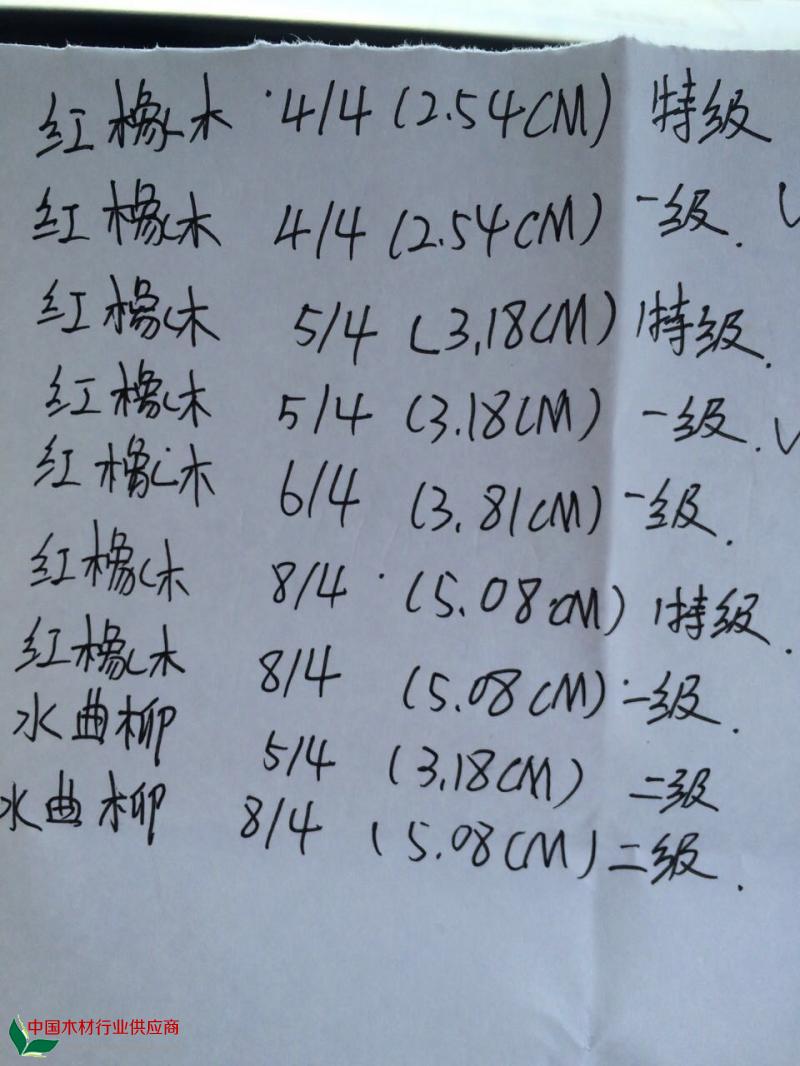 红橡木 4/4 (2.54CM) 特级
红橡木 4/4 (2.54CM) 一级.
红橡木 5/4 (3.18CM) 特级.
红橡木 5/4 (3.18CM) 一级.
红橡木 6/4 (3.81CM) 一级.
红橡木 8/4 (5.08CM) 特级.
红橡木 8/4 (5.08CM) 一级.
水曲柳 5/4 (3.18CM) 二级
水曲柳 8/4 (5.08CM) 二级.
中国木材行业供应商